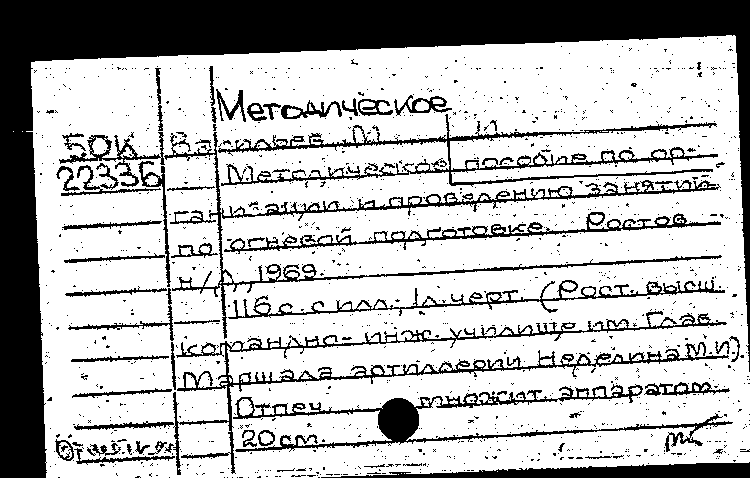 Методическое
50К Васильев М И
2233Б Методическое пособие по ор-
ганизации и проведению занятий
по огневой подготовке. Ростов
н/Д, 1969.
116 с. с илл.; 1л.черт. (Рост. высш.
командно-инж. училище им. Глав.
Маршала артиллерии Неделина М.И)
Отпеч. множит. аппаратом.
20 см.